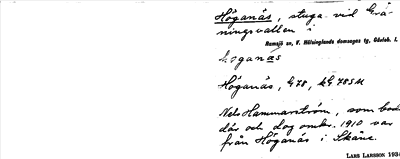 Höganäs, stuga vid Grä-
ningsvallen i
Ramsjö sn, V. Hälsinglands domsagas tg, Gävleb. l.
hoganäs
Höganäs, G78,
Nels Hammarström, som bod
där och dog omkr. 1910 var
från Höganäs i Skåne.
LARS LARSSON 193